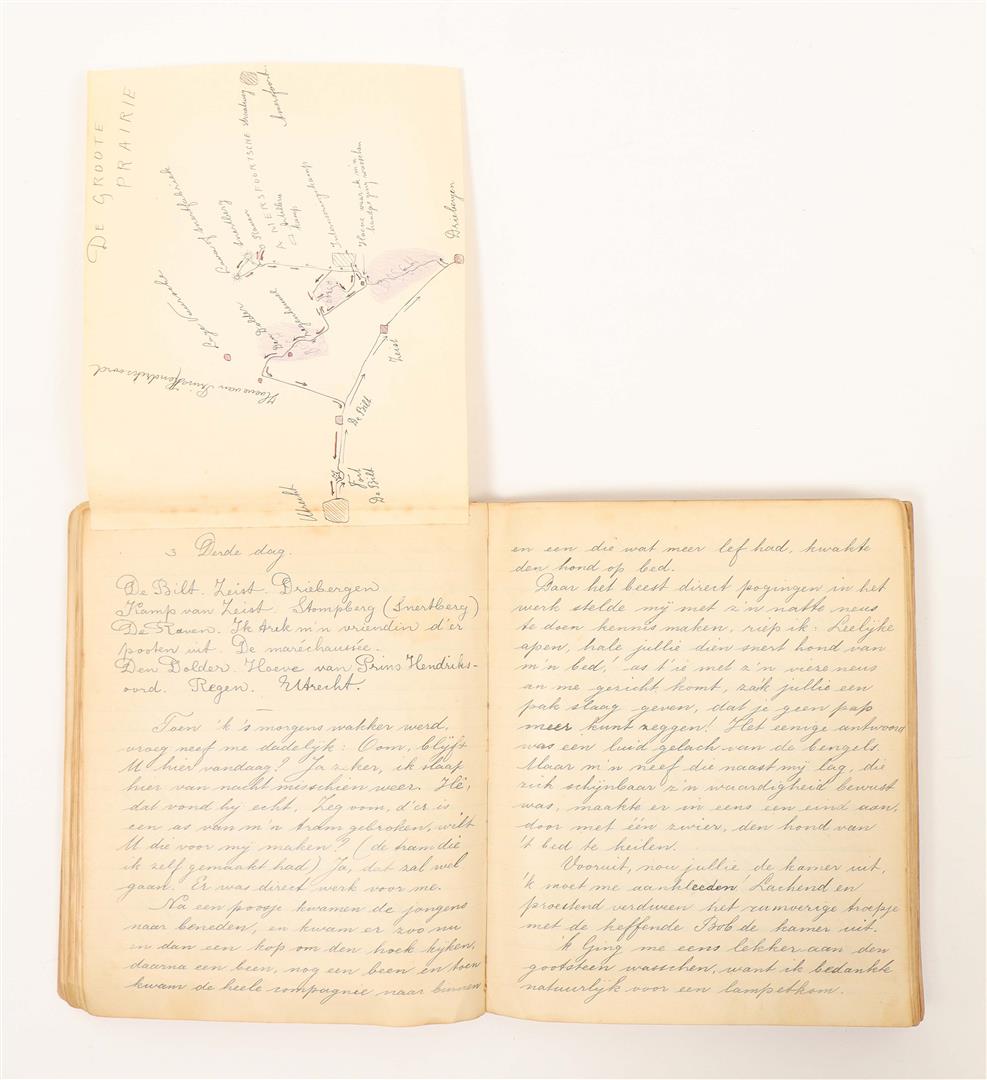 DE GROOTE
PRAIRIE
Amersfoort
AMERSFOORTSCHE
Interneeringskamp
Hoeve waar ik m'n
handjes ging wasschen
Leger
kamp
De Raven
Snertberg
Lage Vuursche
Den Dolder
Hoeve van Prins Hendriksoord
BOSCH
Driebergen
Zeist
De Bilt
Fort
De Bilt
Utrecht
3 Derde dag.
De Bilt. Zeist. Driebergen
Kamp van Zeist. Stompberg (Snertberg)
De Raven. Ik trek m'n vriendin d'er
pooten uit. De maréchaussée.
Den Dolder. Hoeve van Prins Hendriks-
oord. Regen. Utrecht.
Toen 'k 's morgens wakker werd,
vroeg neef me dadelijk: Oom, blijft
U hier vandaag? Ja zeker, ik slaap
hier van nacht misschien weer. Hè,
dat vond hij echt. Zeg oom, d'er is
een as van m'n tram gebroken, wilt
U die voor mij maken? (de tram die
ik zelf gemaakt had) Ja, dat zal wel
gaan. Er was direct werk voor me.
Na een poosje kwamen de jongens
naar beneden, en kwam er zoo nu
en dan een kop om den hoek kijken,
daarna een been, nog een been en toen
kwam de heele compagnie naar binnen
en een die wat meer lef had, kwakte
den hond op bed.
Daar het beest direct pogingen in het
werk stelde mij met z'n natte neus
te doen kennis maken, riep ik: Leelijke
apen, hale jullie dien snert hond van
m'n bed! as t'ie met z'n vieze neus
an me gezicht komt, zá'k jullie een
pak slaag geven, dat je geen pap
meer kunt zeggen! Het eenige antwoord
was een luid gelach van de bengels.
Maar m'n neef die naast mij lag, die
zich schijnbaar z'n waardigheid bewust
was, maakte er in eens een eind aan,
door met één zwier, den hond van
't bed te keilen.
Vooruit, nou jullie de kamer uit,
'k moet me aankleeden! Lachend en
proestend verdween het rumoerige troepje
met de keffende Bob de kamer uit.
'k Ging me eens lekker aan den
gootsteen wasschen, want ik bedankte
natuurlijk voor een lampetkom.